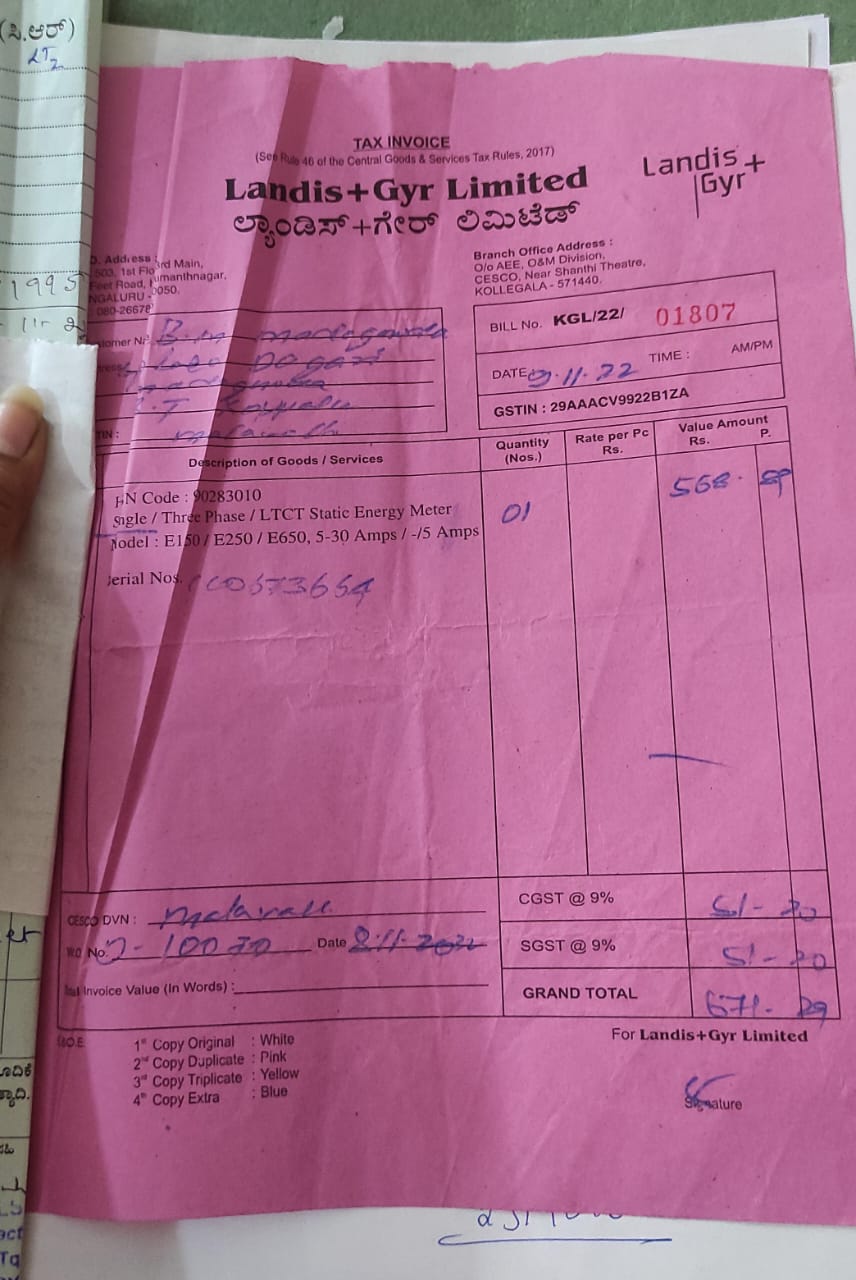 (ಸಿ.ಆರ್)
LT2
1995
TAX INVOICE
(See Rule 46 of the Central Goods & Services Tax Rules, 2017)
Landis+Gyr Limited
ಲ್ಯಾಂಡಿಸ್+ಗೇರ್ ಲಿಮಿಟೆಡ್
Landis
Gyr+
Address :
503, 1st Flo 3rd Main,
Feet Road, umanthnagar,
NGALURU - 0050.
080-26678
Branch Office Address :
O/o AEE, O&M Division,
CESCO, Near Shanthi Theatre,
KOLLEGALA - 571440.
BILL No. KGL/22/ 01807
DATE 9.11.22 TIME : AM/PM
GSTIN : 29AAACV9922B1ZA
Description of Goods / Services
Quantity (Nos.)
Rate per Pc Rs.
Value Amount Rs. P.
N Code : 90283010
ngle / Three Phase / LTCT Static Energy Meter
Model : E150 / E250 / E650, 5-30 Amps / -/5 Amps
01
568.
erial Nos.
CESCO DVN :
No. Date 8.11.2022
Invoice Value (In Words) :
CGST @ 9% 51-20
SGST @ 9% 51-20
GRAND TOTAL 671-29
&O.E.
1st Copy Original : White
2nd Copy Duplicate : Pink
3rd Copy Triplicate : Yellow
4th Copy Extra : Blue
For Landis+Gyr Limited
Signature